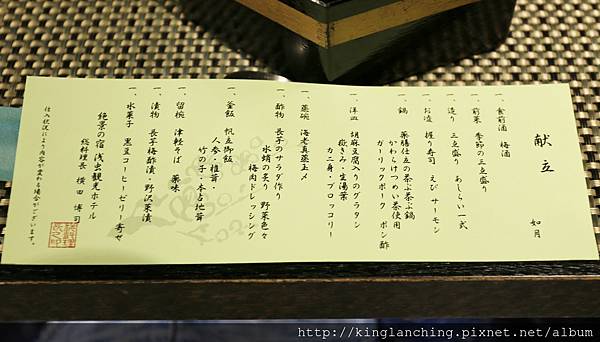 献立
如月
一、食前酒 梅酒
一、前菜 季節の三点盛り
一、造り 三点盛り あしらい一式
一、お造 握り寿司 えび サーモン
一、鍋 薬膳仕立の茶ぶ茶ぶ鍋
かわらけつめい茶使用
ガーリックポーク ポン酢
一、洋皿 胡麻豆腐入りのグラタン
獄きみ・生湯葉
カニ身・ブロッコリー
一、蒸碗 海老真蒸玉〆
一、酢物 長芋のサラダ作り
水蛸の炙り 野菜色々
梅肉ドレッシング
一、釜飯 帆立御飯
人参・椎茸
竹の子・本占地茸
一、留椀 津軽そば 薬味
一、漬物 長芋梅酢漬・野沢菜漬
一、水菓子 黒豆コーヒーゼリー寄せ
絶景の宿 浅虫観光ホテル
総料理長 横田 博司
仕入状況により内容が変わる場合がございます。
http://kinglanching.pixnet.net/album